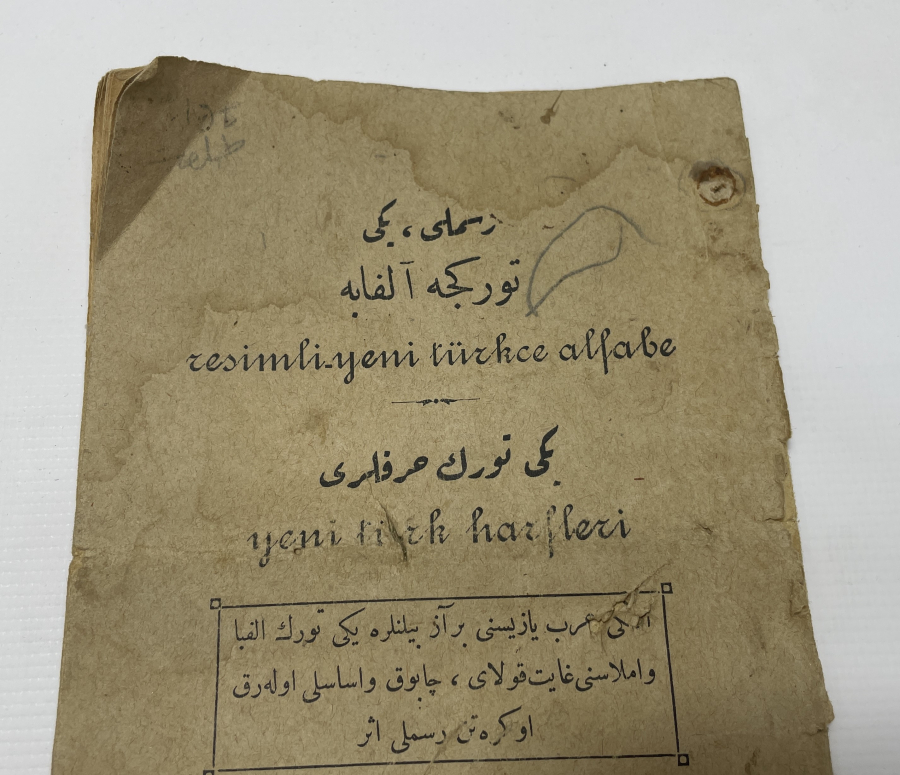 رسملی، یکی
تورکجه آلفابه
resimli-yeni türkce alfabe
یکی تورك حرفلری
yeni türk harfleri
عرب یازیسنی بر آز بیلنلره یکی تورك الفبا
واملاسنی غایت قولای ، چابوق واساسلی اوله‌رق
اوکره‌تن رسملی اثر